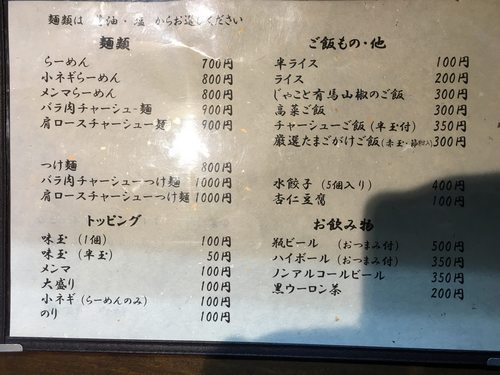 麺類は 醤油・塩 からお選びください
麺類
らーめん 700円
小ネギらーめん 800円
メンマらーめん 800円
バラ肉チャーシュー麺 900円
肩ロースチャーシュー麺 900円
つけ麺 800円
バラ肉チャーシューつけ麺 1000円
肩ロースチャーシューつけ麺 1000円
トッピング
味玉（1個） 100円
味玉（半玉） 50円
メンマ 100円
大盛り 100円
小ネギ（らーめんのみ） 100円
のり 100円
ご飯もの・他
半ライス 100円
ライス 200円
じゃこと有馬山椒のご飯 300円
高菜ご飯 300円
チャーシューご飯（半玉付） 350円
厳選たまごがけご飯 300円
水餃子（5個入り） 400円
杏仁豆腐 100円
お飲み物
瓶ビール （おつまみ付） 500円
ハイボール（おつまみ付） 350円
ノンアルコールビール 350円
黒ウーロン茶 200円